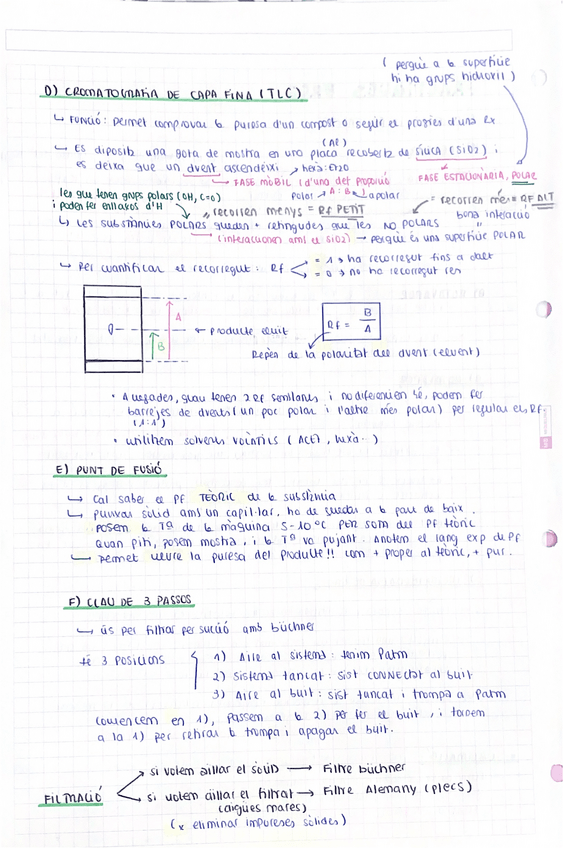 ( perquè a la superfície
hi ha grups hidroxil )
D) CROMATOGRAFIA DE CAPA FINA (TLC)
↳ FUNCIÓ: permet comprovar la puresa d'un compost o seguir el progrés d'una Rx
(Al)
↳ Es diposita una gota de mostra en una placa recoberta de sílica (SiO2) i
es deixa que un eluent ascendeixi → hexà: EtO
↳ FASE MÒBIL i d'una det proporció
FASE ESTACIONÀRIA, POLAR
Polar ↙ A : B ↘ apolar
les que tenen grups polars (OH, C=O)
i poden fer enllaços d'H
recorren menys = Rf PETIT
= recorren més = RF ALT
bona interacció
↳ Les substàncies POLARS queden + retingudes que les NO POLARS
(interaccionen amb el SiO2) → perquè és una superfície POLAR
↳ Per quantificar el recorregut: Rf
= 1 → ha recorregut fins a dalt
= 0 → no ha recorregut res
A
B
← Producte eluit
Rf = B / A
Depèn de la polaritat del eluent (elvent)
• A vegades, quan tenen 2 Rf semblants i no diferencien bé, podem fer
barrejes de eluents (un poc polar i l'altre més polar) per regular els Rf.
(1:1')
• utilitzem solvents volàtils (AcEt, hexà..)
E) PUNT DE FUSIÓ
↳ Cal saber el PF TEÒRIC de la substància
↳ Punxar sòlid amb un capil·lar, ha de quedar a la part de baix.
Posem la Tª de la màquina 5-10ºC PER SOTA del Pf teòric
Quan piti, posem mostra, i la Tª va pujant. Anotem el rang exp de Pf
↳ Permet veure la puresa del producte!! com + proper al teòric, + pur.
F) CLAU DE 3 PASSOS
↳ ús per filtrar per succió amb büchner
té 3 POSICIONS
1) Aire al sistema: tenim Patm
2) Sistema tancat: sist CONNECTAT al buit
3) Aire al buit: sist tancat i trompa a Patm
Comencem en 1), passem a la 2) per fer el buit, i tornem
a la 1) per retirar la trompa i apagar el buit.
FILTRACIÓ
→ si volem aïllar el sòlid → Filtre büchner
→ si volem aïllar el filtrat → Filtre Alemany (plecs)
(aigües mares)
(x eliminar impureses sòlides)